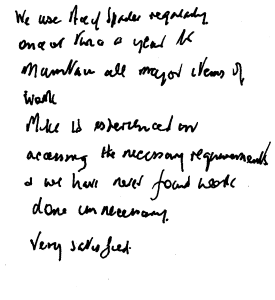 We use regularly
once or twice a year to
maintain all major items of
work
Mike is experienced in
assessing the necessary requirements
& we have never found work
done unnecessary.
Very satisfied.